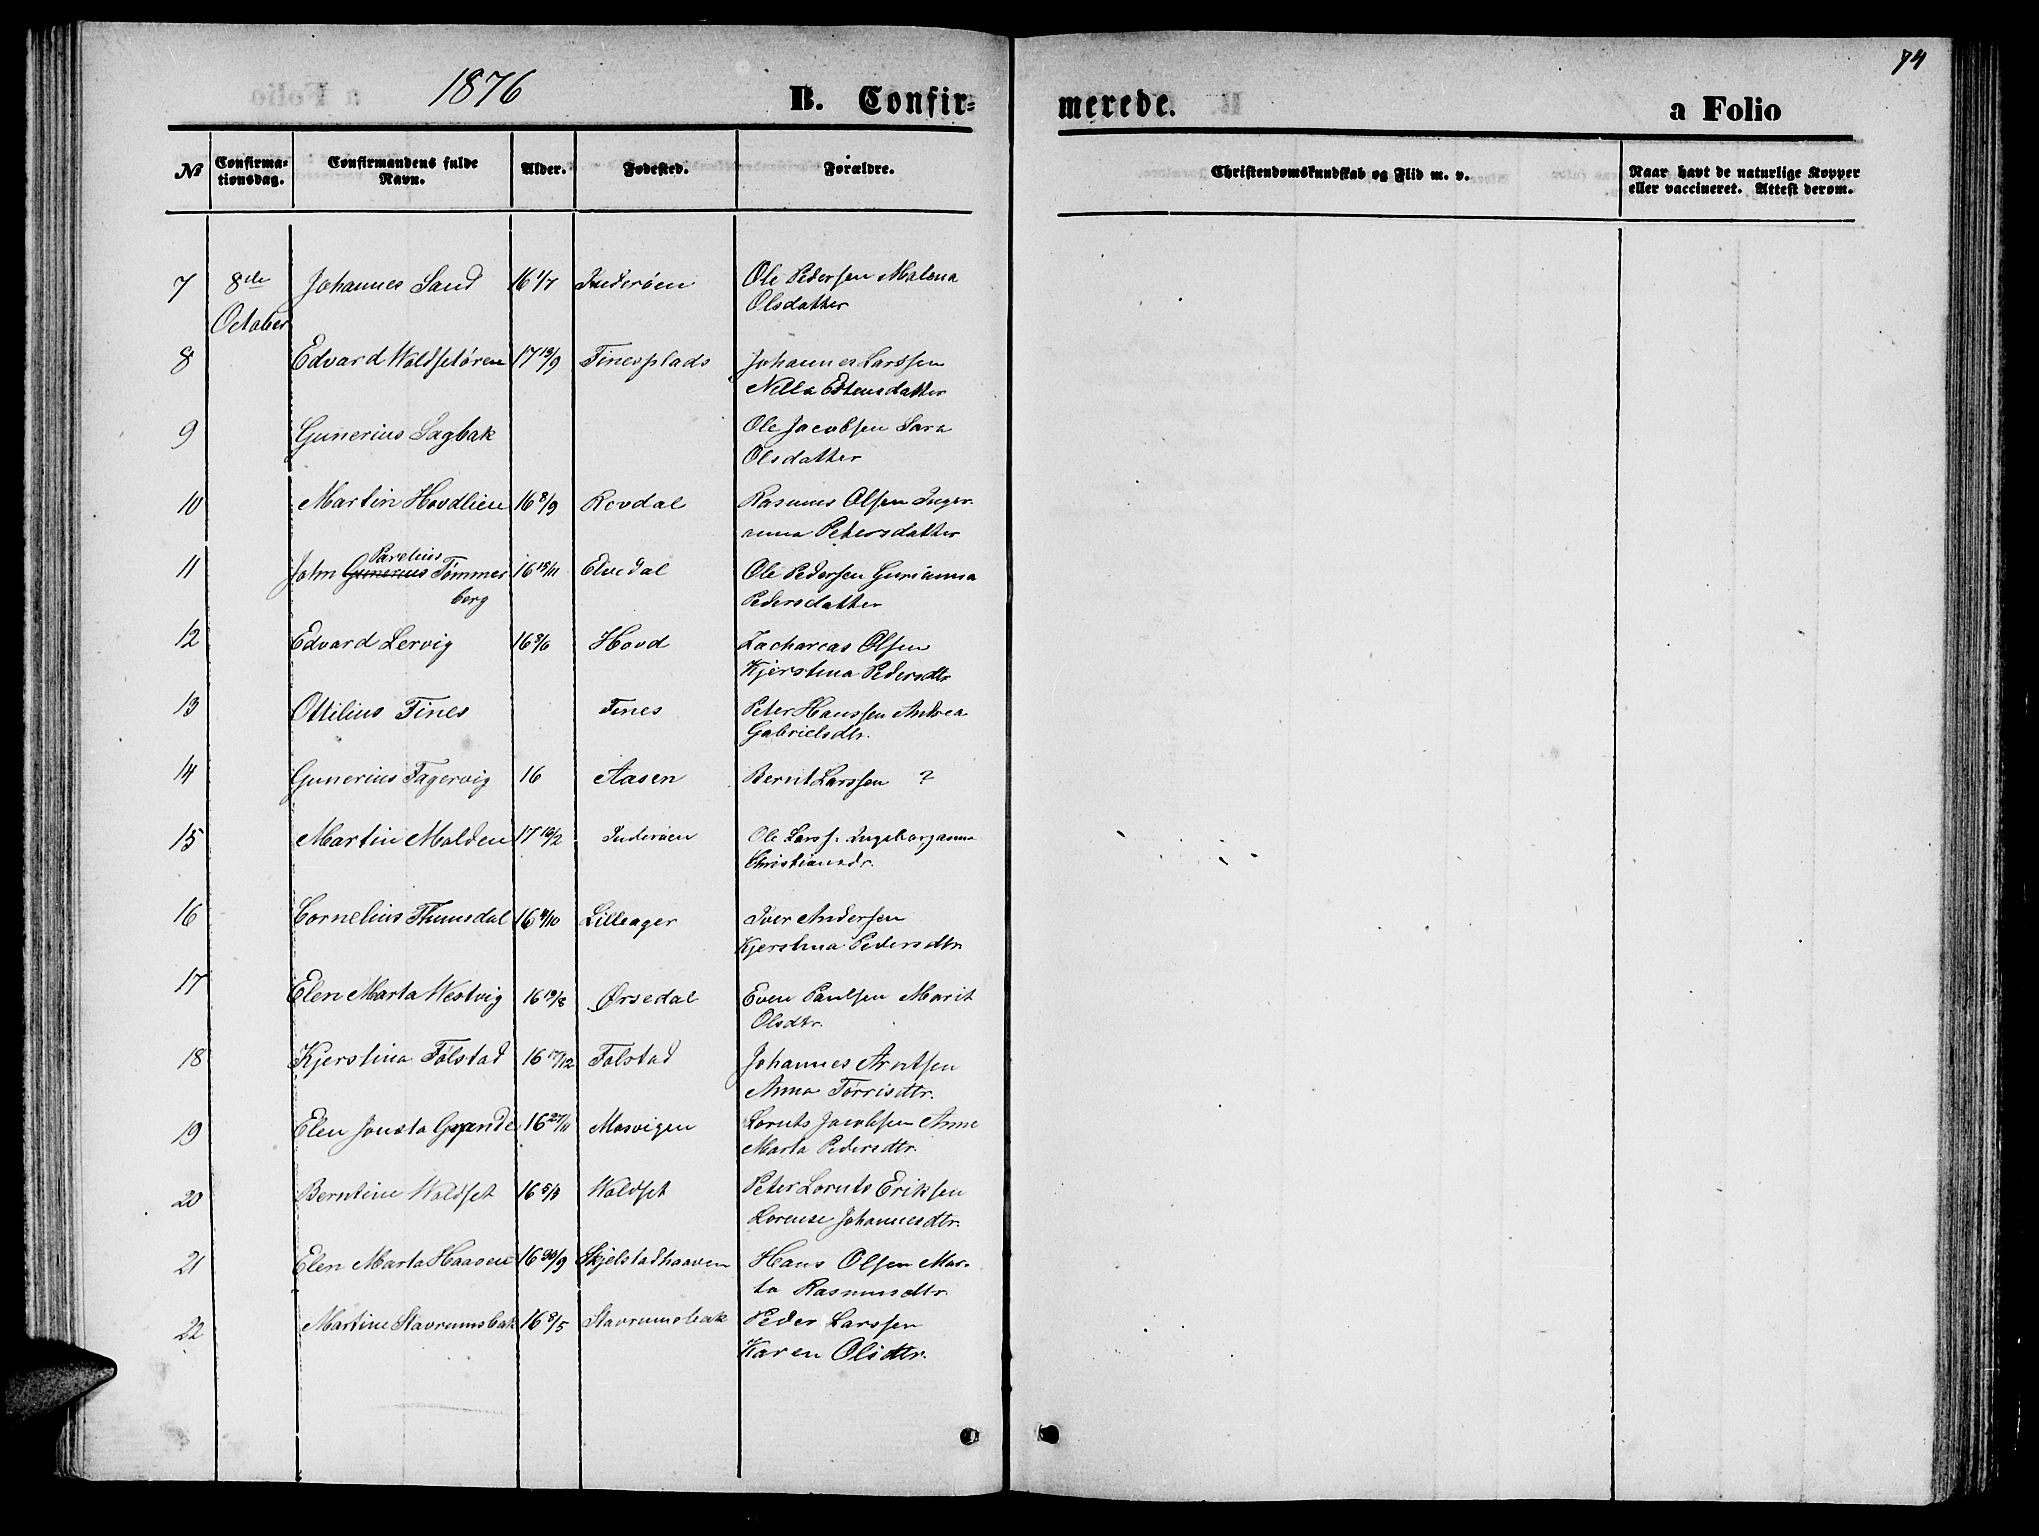 1876
74
B. Confir-
merede.
a Folio
№ Confirma-
tionsdag.
Confirmandens fulde
Navn.
Alder.
Fødested.
Forældre.
Christendomskundskab og Flid m. v.
Naar havt de naturlige Kopper
eller vaccineret. Attest derom.
7 8de Johannes Sand 16 1/7 Inderøen Ole Pedersen Malena
October Olsdatter
8 Edvard Woldsetøren 17 13/9 Finesplads Johannes Larssen
Nilla Estensdatter
9 Gunerius Sagbak Ole Jacobsen Sara
Olsdatter
10 Martin Hovdlien 16 8/9 Rovdal Rasmus Olsen Inger
anna Petersdatter
Parelius
11 John Gunerius Tømmer 16 18/11 Elvedal Ole Pedersen Gurianna
berg Pedersdatter
12 Edvard Lervig 16 9/6 Hovd Zacharias Olsen
Kjerstina Pedersdtr
13 Ottilius Fines Fines Peter Hanssen Andrea
Gabrielsdtr.
14 Gunerius Fagervig 16 Aasen Bernt Larssen ?
15 Martin Molden 17 10/2 Inderøen Ole Larss. Ingeborganna
Christiansdr.
16 Cornelius Thunsdal 16 4/10 Lilleager Iver Andersen
Kjerstina Pedersdtr.
17 Elen Marta Westvig 16 19/8 Ørsedal Even Paulsen Marit
Olsdtr.
18 Kjerstina Følstad 16 17/12 Følstad Johannes Arntsen
Anna Tørrisdtr.
19 Elen Jonsta 16 27/11 Mosvigen Lornts Jacobsen Anne
Marta Pedersdtr.
20 Berntine Woldset 16 5/3 Woldset Peter Lornts Eriksen
Lorense Johannesdtr.
21 Elen Marta Haaven 16 30/9 Skjelstadhaaven Hans Olsen Mar-
ta Rasmusdtr.
22 Martine Stavrumsbak 16 8/5 Stavrumsbak Peder Larssen
Karen Olsdtr.